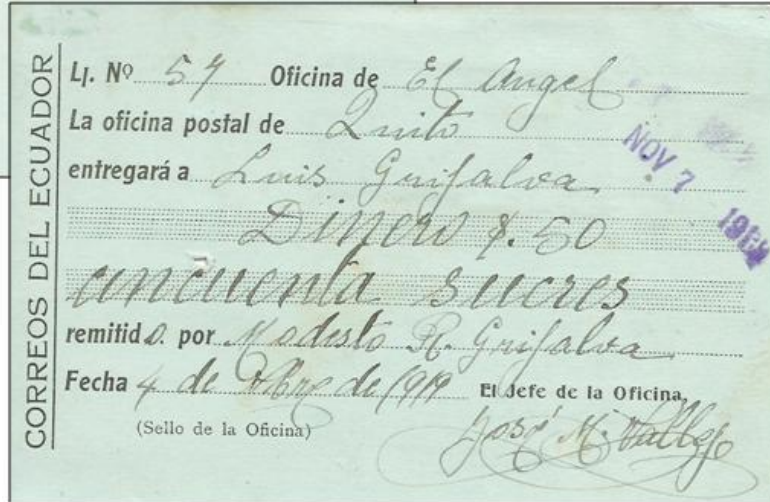 CORREOS DEL ECUADOR
Lj. Nº 57 Oficina de El Angel
La oficina postal de Quito
entregará a Luis Grijalva
Dinero $. 50
cincuenta sucres
remitido. por Modesto R. Grijalva
Fecha 4 de de 1919 El Jefe de la Oficina,
(Sello de la Oficina) José M. Vallejo
NOV 7